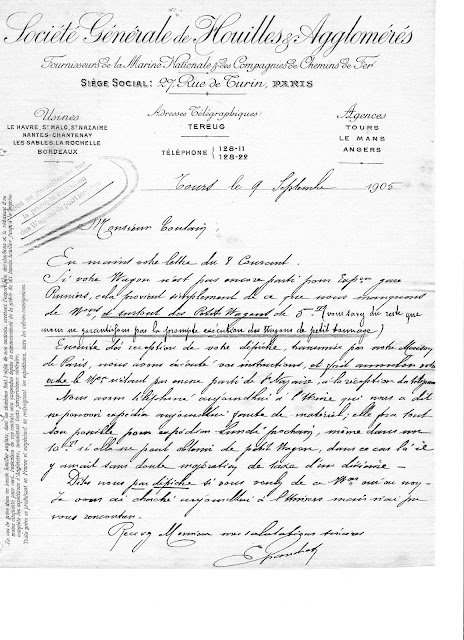 Société Générale de Houilles & Agglomérés
Fournisseurs de la Marine Nationale & des Compagnies de Chemins de Fer
SIÈGE SOCIAL: 27, Rue de Turin, PARIS
Usines
LE HAVRE, ST MALO, ST NAZAIRE
NANTES-CHANTENAY
LES SABLES, LA ROCHELLE
BORDEAUX
Adresses Télégraphiques:
TEREUG
TÉLÉPHONE { 128-11
128-22
Agences
TOURS
LE MANS
ANGERS
Tours le 9 Septembre 1905
Monsieur Toutain
En mains votre lettre du 8 Courant.
Si votre Wagon n'est pas encore parti pour gare
Pruniers, cela provient simplement de ce que nous manquons
de Wons et surtout des Petits Wagons de 5 (vous savez du reste que
nous ne garantissons pas la prompte exécution des Wagons de petit tonnage)
Ensuite dès réception de votre dépêche, transmise par notre Maison
de Paris, nous avons exécuté vos instructions, et fait annuler votre
ordre le Won n'étant pas encore parti de St Nazaire, à la réception du télégramme
Nous avons téléphoné aujourd'hui à l'Usine qui nous a dit
ne pouvoir expédier aujourd'hui faute de matériel, elle fera tout
son possible pour expédier Lundi prochain, même dans un
10T si elle ne peut obtenir de petit Wagon, dans ce cas là il
y aurait sans doute majoration de taxe d'un dixième -
Dites nous par dépêche si vous voulez de ce Won oui ou non -
Je vous ai cherché aujourd'hui à mais n'ai pu
vous rencontrer.
Recevez Monsieur nos salutations sincères